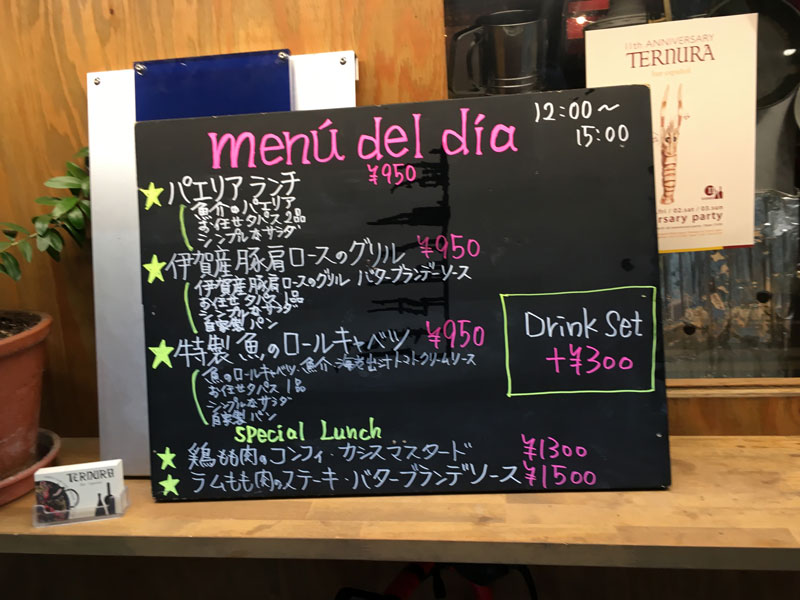 menú del día
12:00～
15:00
★パエリア ランチ ¥950
魚介のパエリア
お任せタパス2品
シンプルなサラダ
★伊賀産豚肩ロースのグリル ¥950
伊賀産豚肩ロースのグリル バターブランデーソース
お任せタパス1品
シンプルなサラダ
自家製パン
★特製魚のロールキャベツ ¥950
魚のロールキャベツ 魚介・海老出汁トマトクリームソース
お任せタパス1品
シンプルなサラダ
自家製パン
Drink Set
+¥300
Special Lunch
★鶏もも肉のコンフィ・カシスマスタード ¥1300
★ラムもも肉のステーキ・バターブランデソース ¥1500
11th ANNIVERSARY
TERNURA
bar español
fri / 02.sat / 03.sun
rsary party
TERNURA